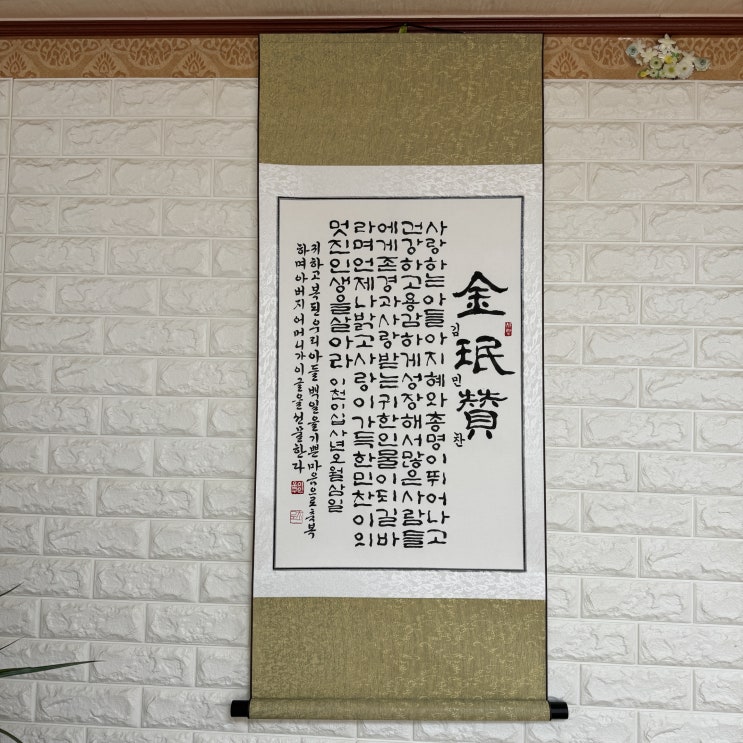 金珉贊
김민찬
사랑하는아들아지혜와총명이뛰어나고
건강하고용감하게성장해서많은사람들
에게존경과사랑받는귀한인물이되길바
라며언제나밝고사랑이가득한민찬이의
멋진인생을살아라 이천이십사년오월삼일
귀하고복된우리아들백일을기쁜마음으로축복
하며아버지어머니가이글을선물한다